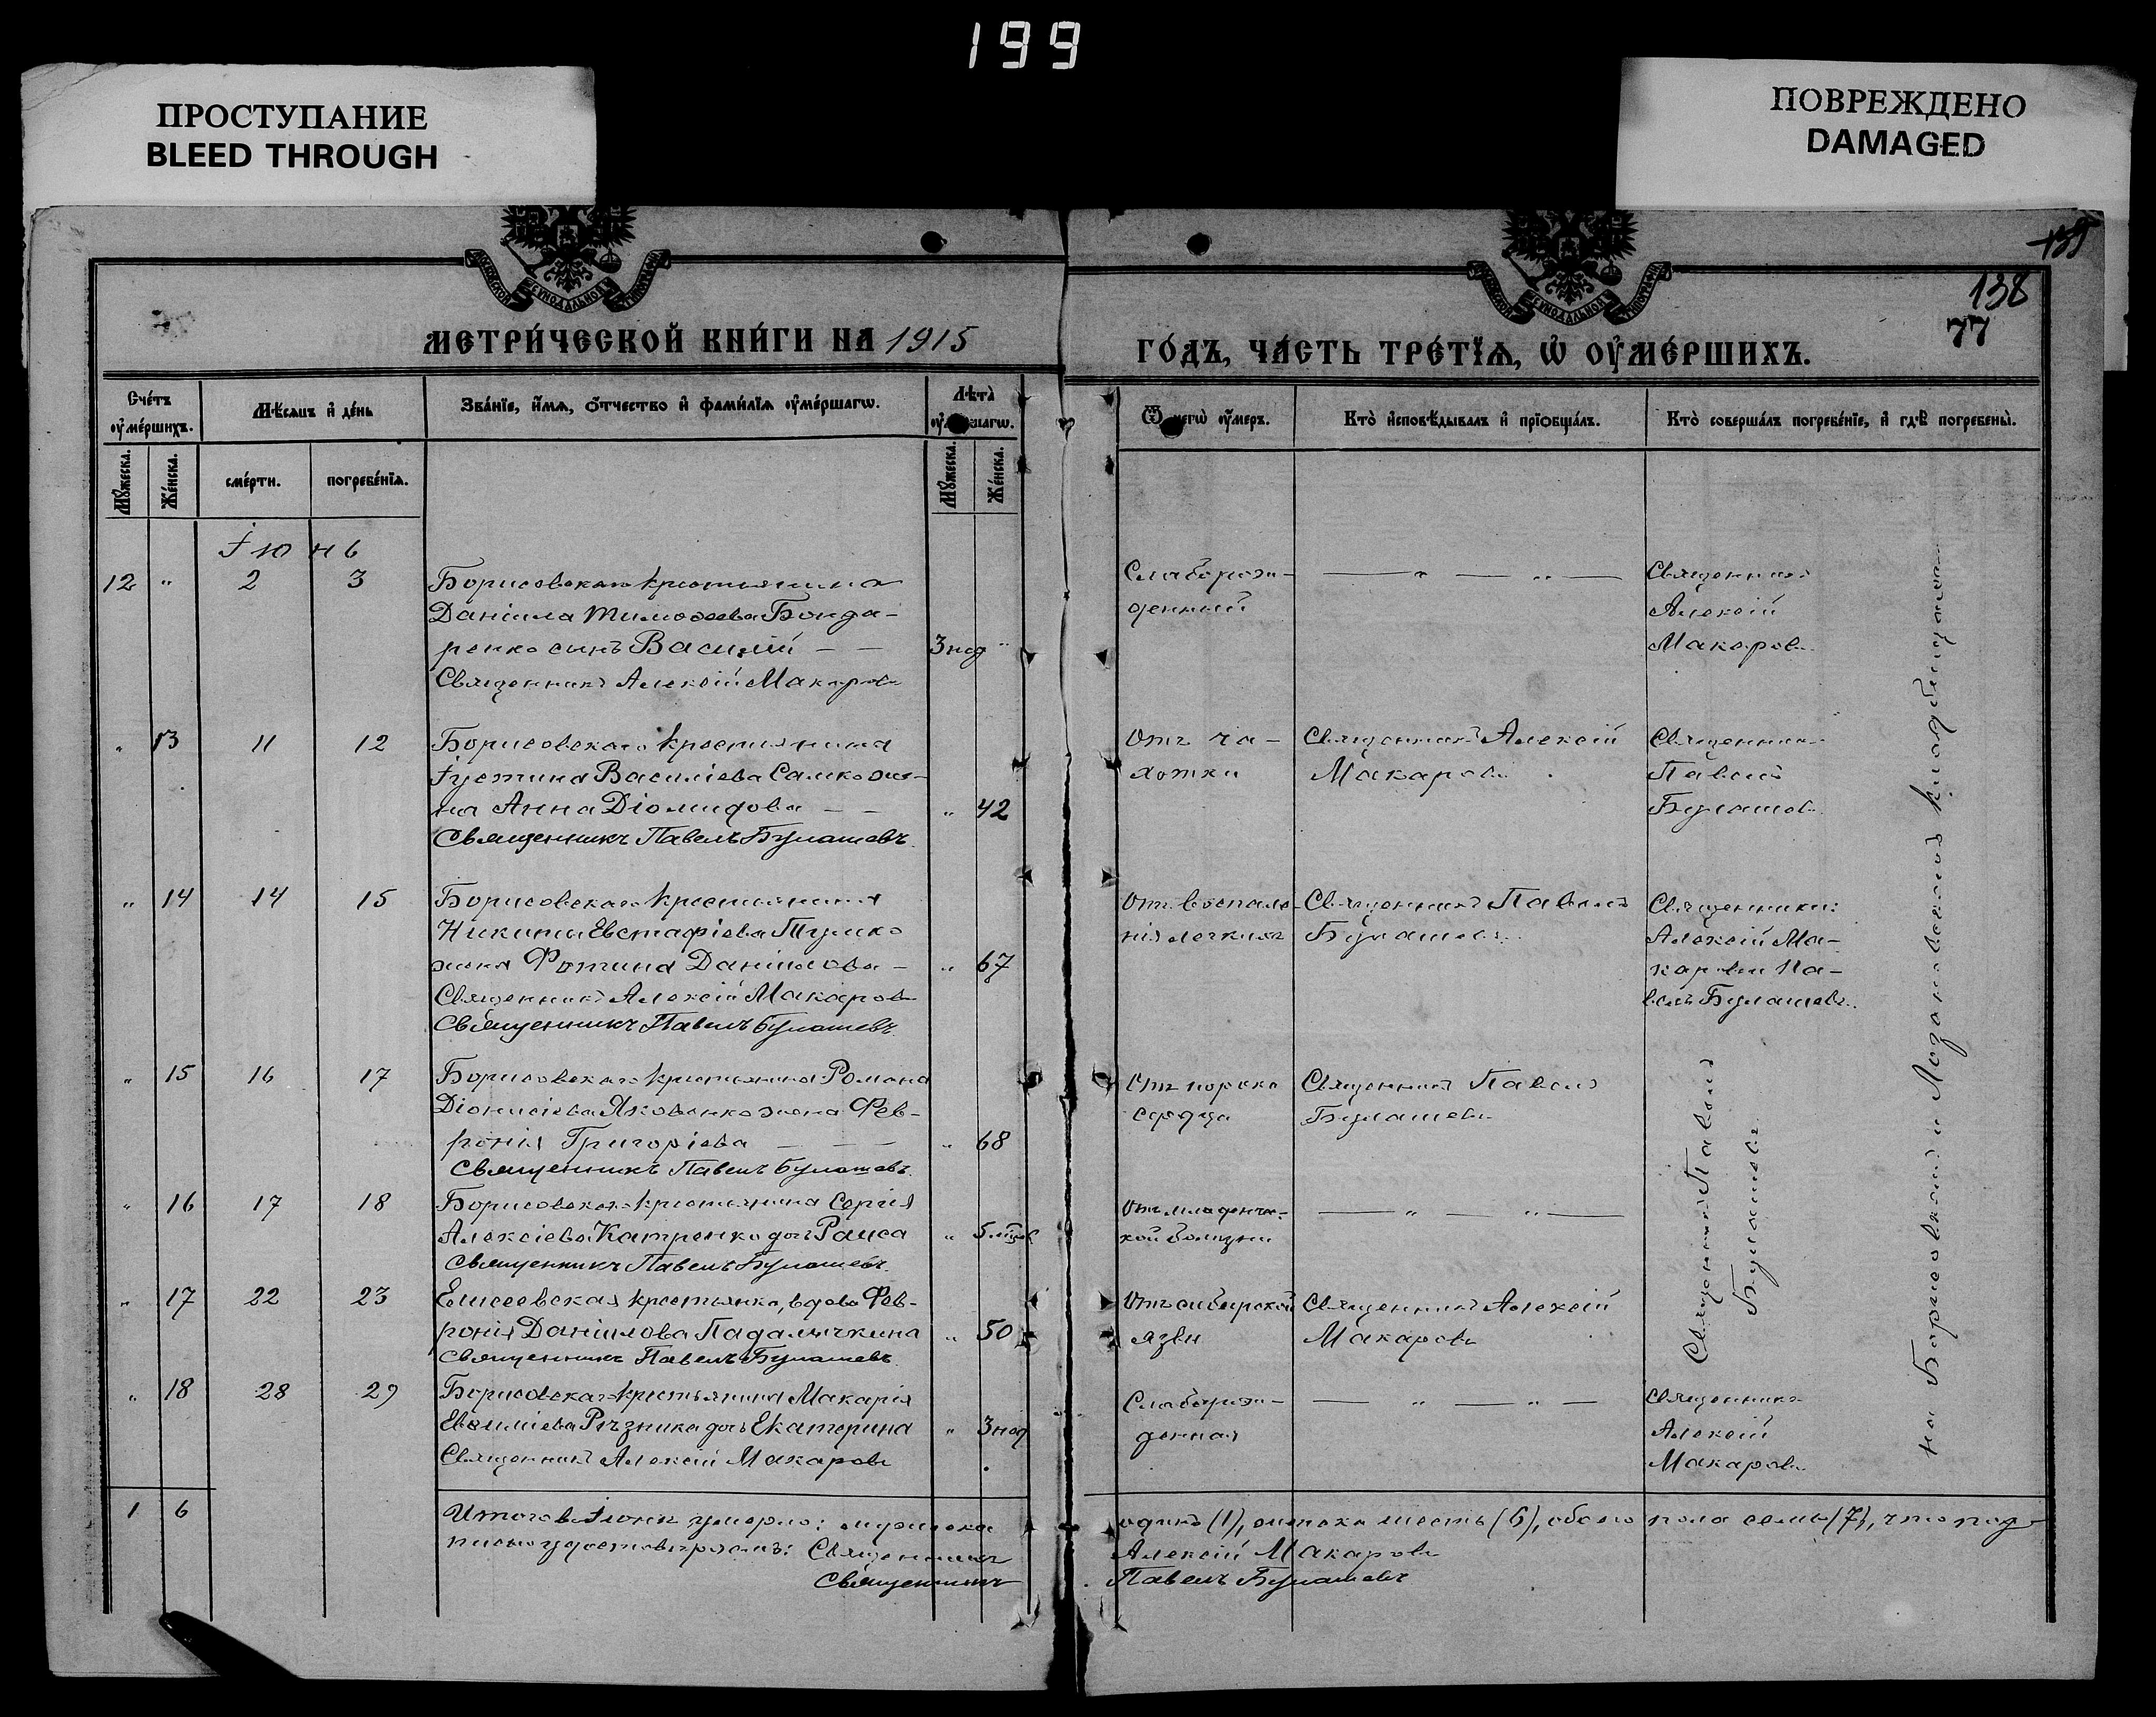 199
ПРОСТУПАНИЕ
BLEED THROUGH
ПОВРЕЖДЕНО
DAMAGED
139
138
77
МЕТРИ́ЧЕСКОЙ КНИ́ГИ НА 1915
ГО́ДЪ, ЧА́СТЬ ТРЕ́ТЇѦ, Ѡ҆ ОУ҆МЕ́РШИХЪ.
Сче́тъ оу҆ме́ршихъ.
Мѣ́сѧцъ и҆ де́нь
Зва́нїе, и҆́мѧ, ѻ҆́тчество и҆ фами́лїѧ оу҆ме́ршагѡ.
Лѣ́та
Ѿ чегѡ̀ оу҆́меръ.
Кто̀ и҆сповѣ́дывалъ и҆ прїѻбща́лъ.
Кто̀ соверша́лъ погребе́нїе, и҆ гдѣ̀ погребены̀.
Мꙋ́жеска.
Же́нска.
сме́рти.
погребе́нїѧ.
Мꙋ́жеска.
Же́нска.
Іюнь
12 " 2 3 Борисовскаго крестьянина
Даніила Тимоѳеева Бонда-
ренко сынъ Василій — — 3 нед "
Священникъ Алексій Макаровъ
Слаборож-
денный
— " — " —
Священникъ
Алексій
Макаровъ
" 13 11 12 Борисовскаго крестьянина
Іустина Василіева Самко же-
на Анна Діомидова — — " 42
Священникъ Павелъ Булашевъ.
Отъ ча-
хотки
Священникъ Алексій
Макаровъ
Священникъ
Павелъ
Булашевъ
" 14 14 15 Борисовскаго крестьянина
Никиты Евстафіева
жена Фотина Даніилова — " 67
Священникъ Алексій Макаровъ
Священникъ Павелъ Булашевъ
Отъ воспале-
нія легкихъ
Священникъ Павелъ
Булашевъ
Священники:
Алексій Ма-
каровъ и Па-
велъ Булашевъ.
" 15 16 17 Борисовскаго крестьянина Романа
Діонисіева Яковенко жена Фев-
ронія Григоріева — — — " 68
Священникъ Павелъ Булашевъ.
Отъ порока
сердца
Священникъ Павелъ
Булашевъ
" 16 17 18 Борисовскаго крестьянина Сергія
Алексіева Катренко дочь Раиса " 5 мѣс
Священникъ Павелъ Булашевъ.
Отъ младенчес-
кой болѣзни
— " — " —
" 17 22 23 Елисеевская крестьянка, вдова Фев-
ронія Даніилова Падаличкина " 50
Священникъ Павелъ Булашевъ
Отъ сибирской
язвы
Священникъ Алексій
Макаровъ
Священникъ Павелъ
Булашевъ
" 18 28 29 Борисовскаго крестьянина Макарія
Евѳиміева Рѣзника дочь Екатерина " 3 нед
Священникъ Алексій Макаровъ
Слаборож-
денная
— " — " —
Священникъ
Алексій
Макаровъ
на Борисовскомъ и Лозоноватскомъ кладбищахъ
1 6 Итого въ Іюнѣ умерло: мужеска одинъ (1), женска шесть (6), обоего пола семь (7), что под-
писью удостовѣряемъ: Священникъ Алексій Макаровъ
Священникъ Павелъ Булашевъ